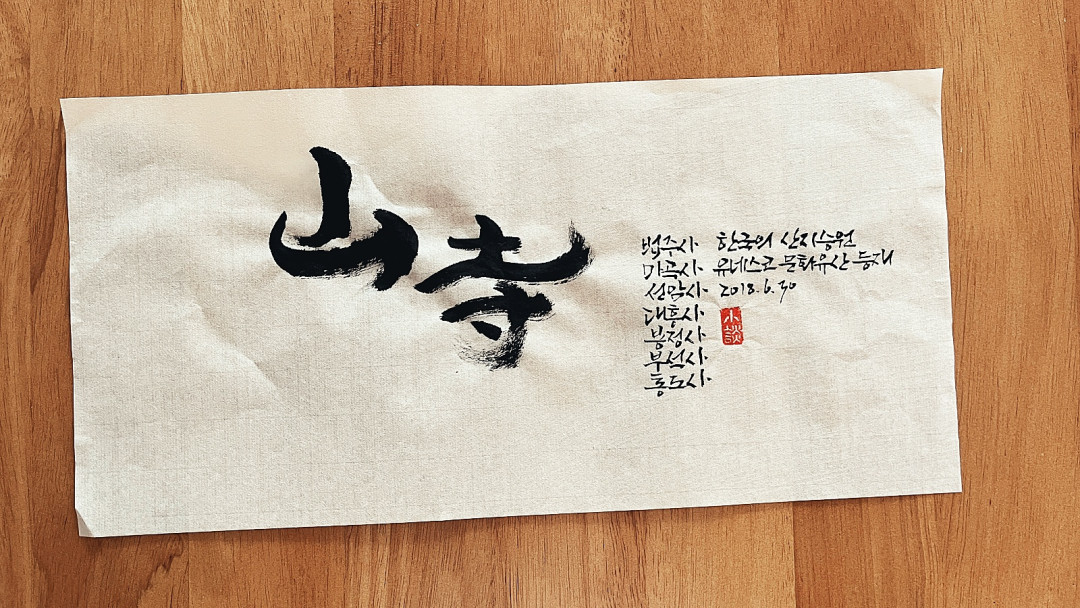 山寺
법주사
마곡사
선암사
대흥사
봉정사
부석사
통도사
한국의 산지승원
유네스코 문화유산 등재
2018.6.30
小談